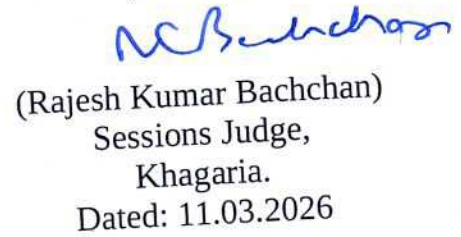 (Rajesh Kumar Bachchan)
Sessions Judge,
Khagaria.
Dated: 11.03.2026